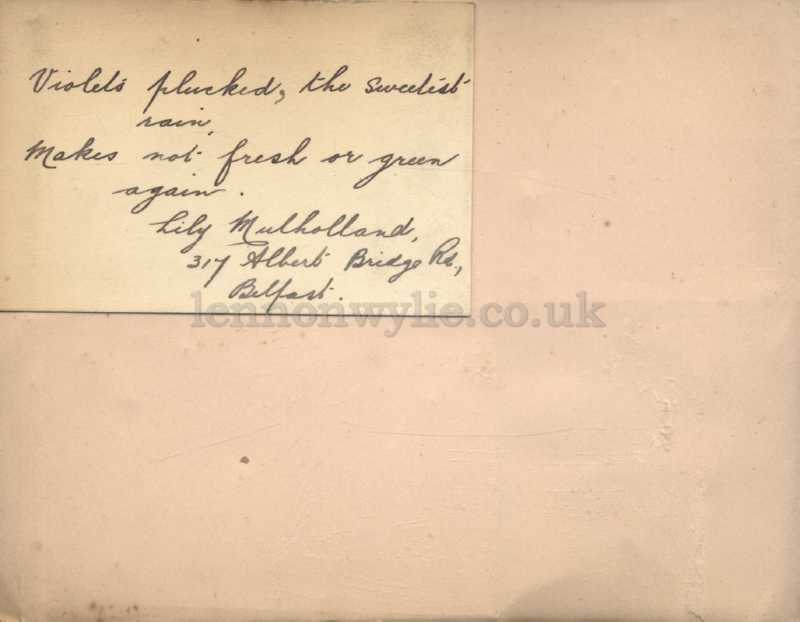 Violets plucked, the sweetest
rain,
Makes not fresh or green
again.
Lily Mulholland,
317 Albert Bridge Rd.,
Belfast.
lennonwylie.co.uk